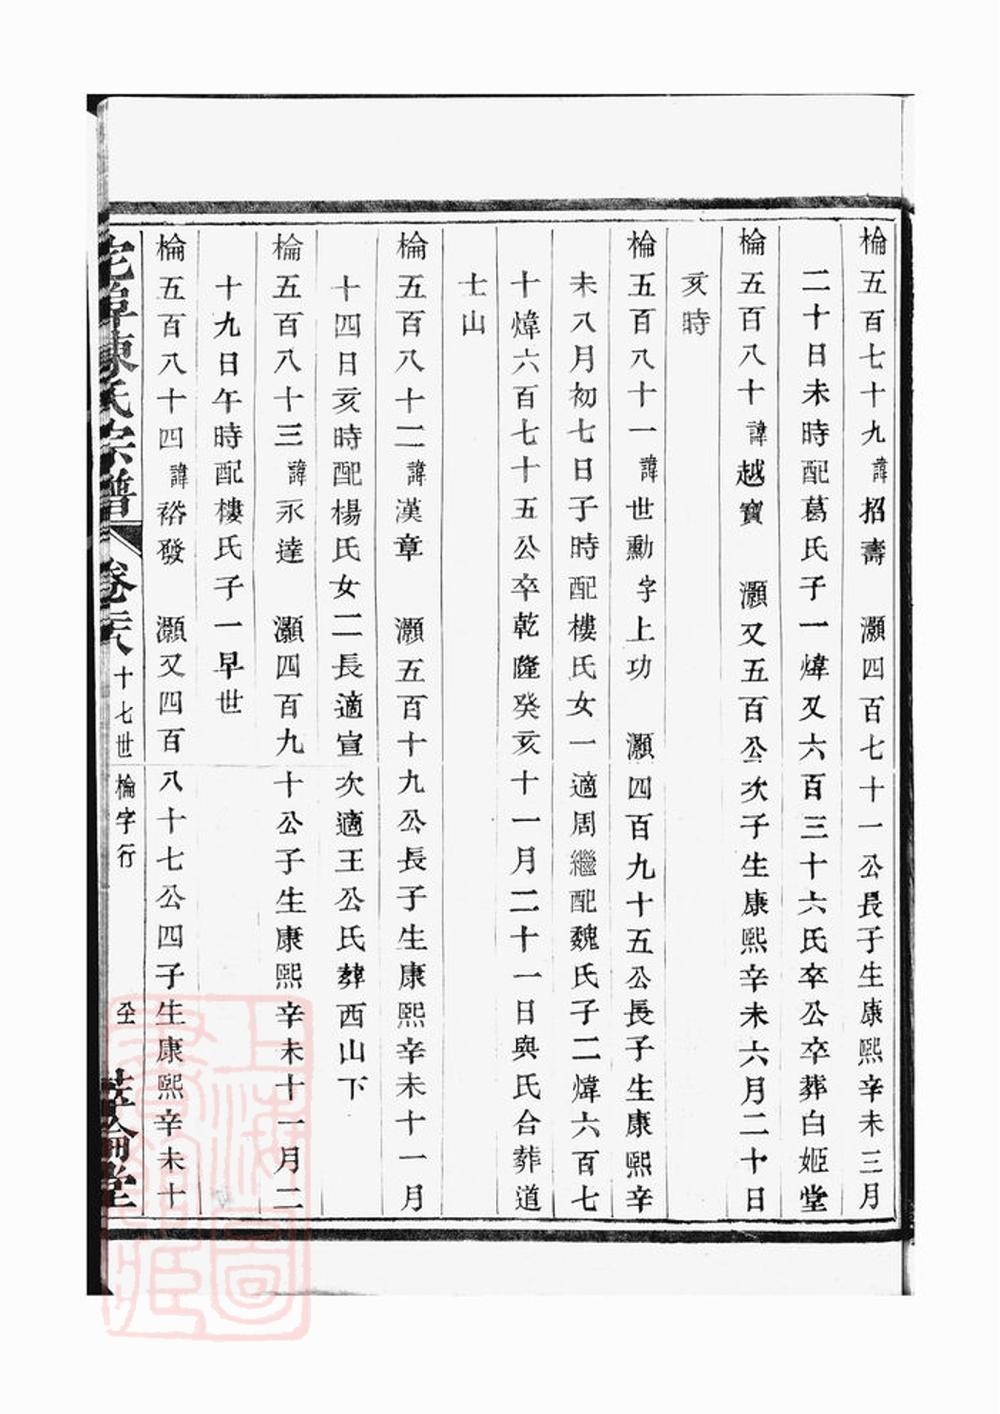 棆五百七十九諱招壽　灝四百七十一公長子生康熙辛未三月
二十日未時配葛氏子一煒又六百三十六氏卒公卒葬白姬堂
棆五百八十諱越寶　灝又五百公次子生康熙辛未六月二十日
亥時
棆五百八十一諱世勳字上功　灝四百九十五公長子生康熙辛
未八月初七日子時配樓氏女一適周繼配魏氏子二煒六百七
十煒六百七十五公卒乾隆癸亥十一月二十一日與氏合葬道
士山
棆五百八十二諱漢章　灝五百十九公長子生康熙辛未十一月
十四日亥時配楊氏女二長適宣次適王公氏葬西山下
棆五百八十三諱永達　灝四百九十公子生康熙辛未十一月二
十九日午時配樓氏子一早世
棆五百八十四諱裕發　灝又四百八十七公四子生康熙辛未十
宅埠陳氏宗譜　卷六　十七世棆字行　堂
上海圖書館藏